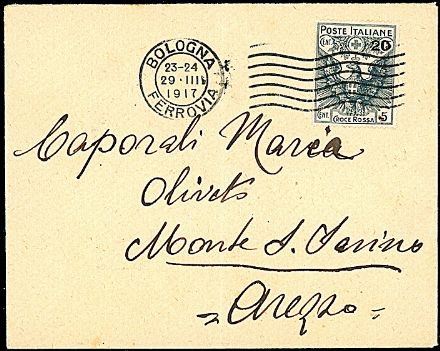 BOLOGNA
23-24
29 · III
1917
FERROVIA
POSTE ITALIANE
CENT. 20
CENT. 5
CROCE ROSSA
Caporali Maria
Oliveto
Monte S. Savino
= Arezzo =